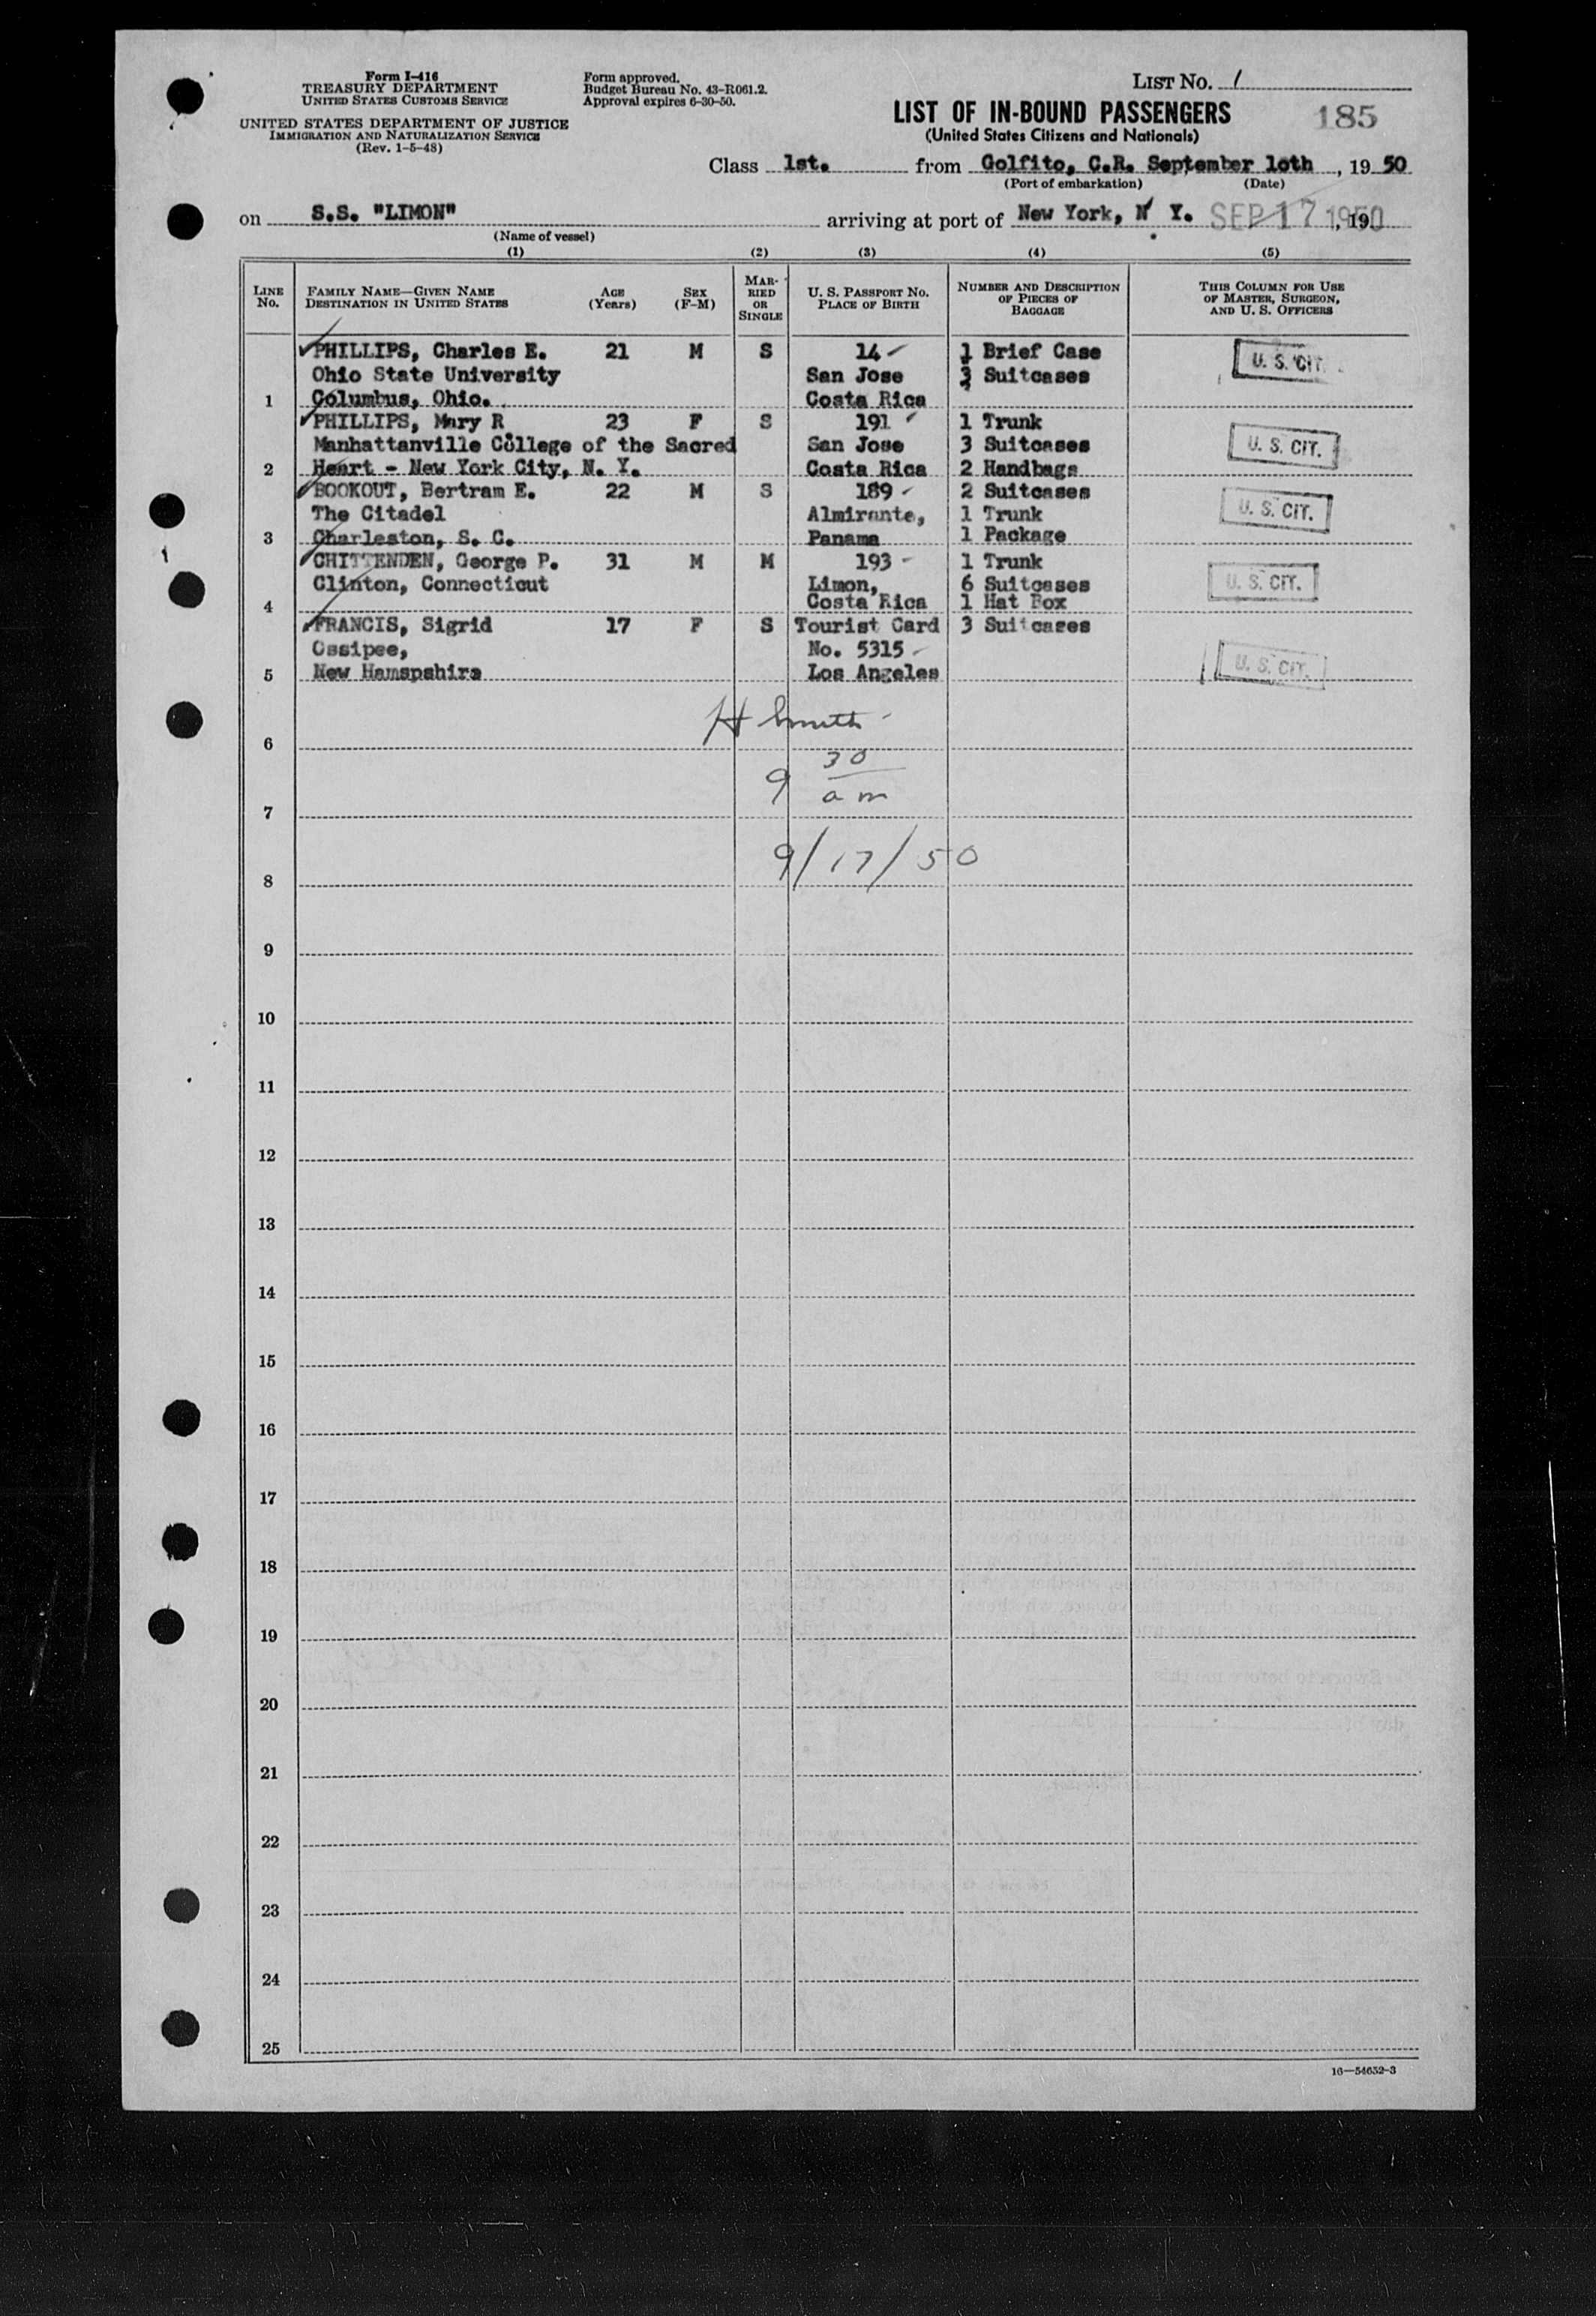 Form I-416
TREASURY DEPARTMENT
UNITED STATES CUSTOMS SERVICE
UNITED STATES DEPARTMENT OF JUSTICE
IMMIGRATION AND NATURALIZATION SERVICE
(Rev. 1-5-48)
Form approved.
Budget Bureau No. 43-R061.2.
Approval expires 6-30-50.
LIST No. 1
LIST OF IN-BOUND PASSENGERS
185
(United States Citizens and Nationals)
Class 1st. from Golfito, C.R. September 1oth, 19 50
(Port of embarkation) (Date)
on S.S. "LIMON" arriving at port of New York, N Y. SEP 17 1950, 19
(Name of vessel)
(1) (2) (3) (4) (5)
LINE No. FAMILY NAME—GIVEN NAME DESTINATION IN UNITED STATES AGE (Years) SEX (F-M) MARRIED OR SINGLE U. S. PASSPORT No. PLACE OF BIRTH NUMBER AND DESCRIPTION OF PIECES OF BAGGAGE THIS COLUMN FOR USE OF MASTER, SURGEON, AND U. S. OFFICERS
PHILLIPS, Charles E. 21 M S 14 1 Brief Case U. S. CIT.
Ohio State University San Jose 3 Suitcases
1 Columbus, Ohio. Costa Rica
PHILLIPS, Mary R 23 F S 191 1 Trunk
Manhattanville College of the Sacred San Jose 3 Suitcases U. S. CIT.
2 Heart - New York City, N. Y. Costa Rica 2 Handbags
BOOKOUT, Bertram E. 22 M S 189 2 Suitcases
The Citadel Almirante, 1 Trunk U. S. CIT.
3 Charleston, S. C. Panama 1 Package
CHITTENDEN, George P. 31 M M 193 1 Trunk
Clinton, Connecticut Limon, 6 Suitcases U. S. CIT.
4 Costa Rica 1 Hat Box
FRANCIS, Sigrid 17 F S Tourist Card 3 Suitcases
Ossipee, No. 5315
5 New Hamspahire Los Angeles U. S. CIT.
H Smith
6
9 30
am
7
9/17/50
8
9
10
11
12
13
14
15
16
17
18
19
20
21
22
23
24
25
16—54652-3
1